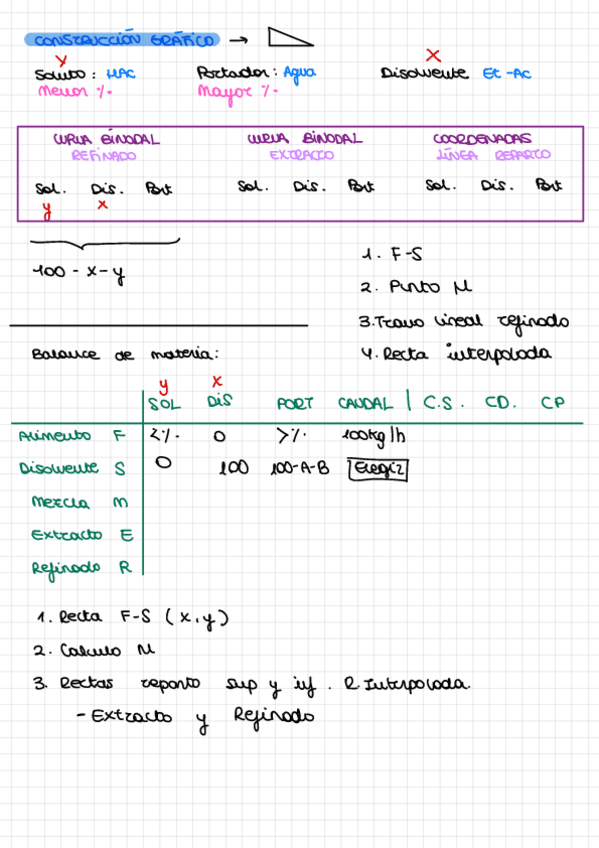 CONSTRUCCIÓN GRÁFICO →
y x
Soluto : HAc Portador : Agua Disolvente Et-Ac
Menor %. Mayor %.
CURVA BINODAL CURVA BINODAL COORDENADAS
REFINADO EXTRACTO LÍNEA REPARTO
Sol. Dis. Port Sol. Dis. Port Sol. Dis. Port
y x
100 - x - y
1. F-S
2. Punto M
3. Tramo lineal refinado
4. Recta interpolada
Balance de materia:
y x
SOL DIS PORT CAUDAL | C.S. CD. CP
Alimento F <%. 0 >%. 100kg/h
Disolvente S 0 100 100-A-B Elegir
Mezcla M
Extracto E
Refinado R
1. Recta F-S (x,y)
2. Calculo M
3. Rectas reparto sup y inf. R.Interpolada.
- Extracto y Refinado